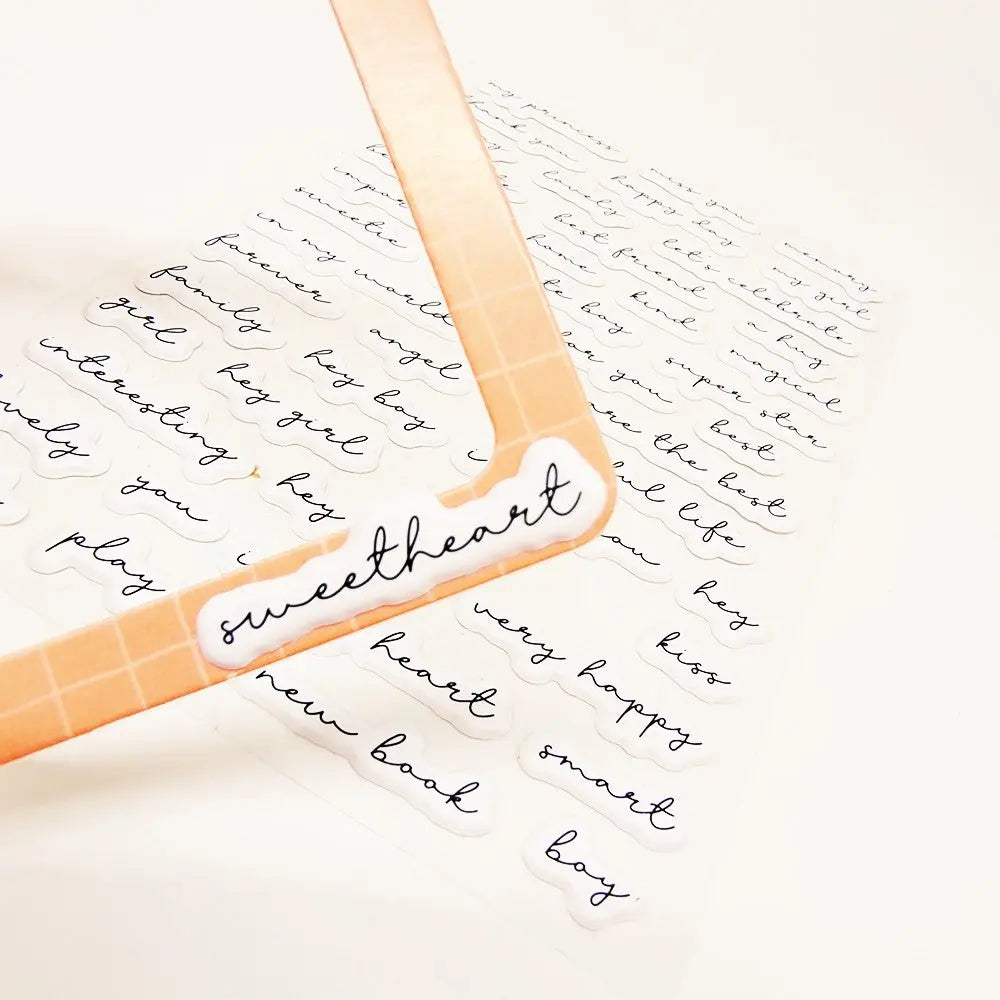 my princess
thank you
miss you
lovely
happy day
memory
sweetie
best friend
let's celebrate
my girl
in my world
home
kind
a hug
forever
boy
magical
family
angel
you
super star
girl
hey boy
are the best
best
interesting
hey girl
life
lovely
hey
you
hey
play
sweetheart
very happy
kiss
heart
new book
smart
boy